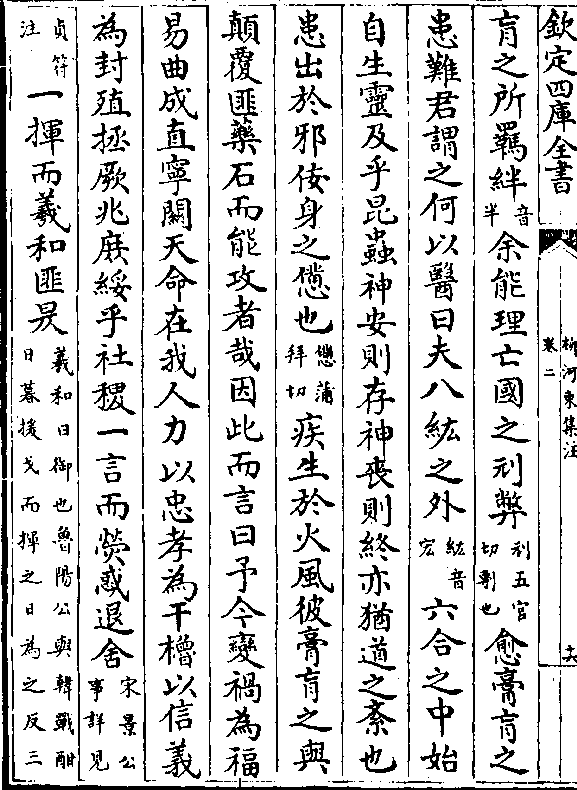 欽定四庫全書
柳河東集注
卷二
十六
肓之所羈絆音半余能理亡國之刓弊刓五官切剸也愈膏肓之
患難君謂之何以醫曰夫八紘之外紘音宏六合之中始
自生靈及乎昆蟲神安則存神喪則終亦猶道之紊也
患出於邪佞身之憊也憊蒲拜切疾生於火風彼膏肓之與
顛覆匪藥石而能攻者哉因此而言曰予今變禍為福
易曲成直寧關天命在我人力以忠孝為干櫓以信義
為封殖拯厥兆庶綏乎社稷一言而熒惑退舍宋景公事詳見
貞符注一揮而羲和匪昃羲和日御也魯陽公與韓戰酣日暮援戈而揮之日為之反三